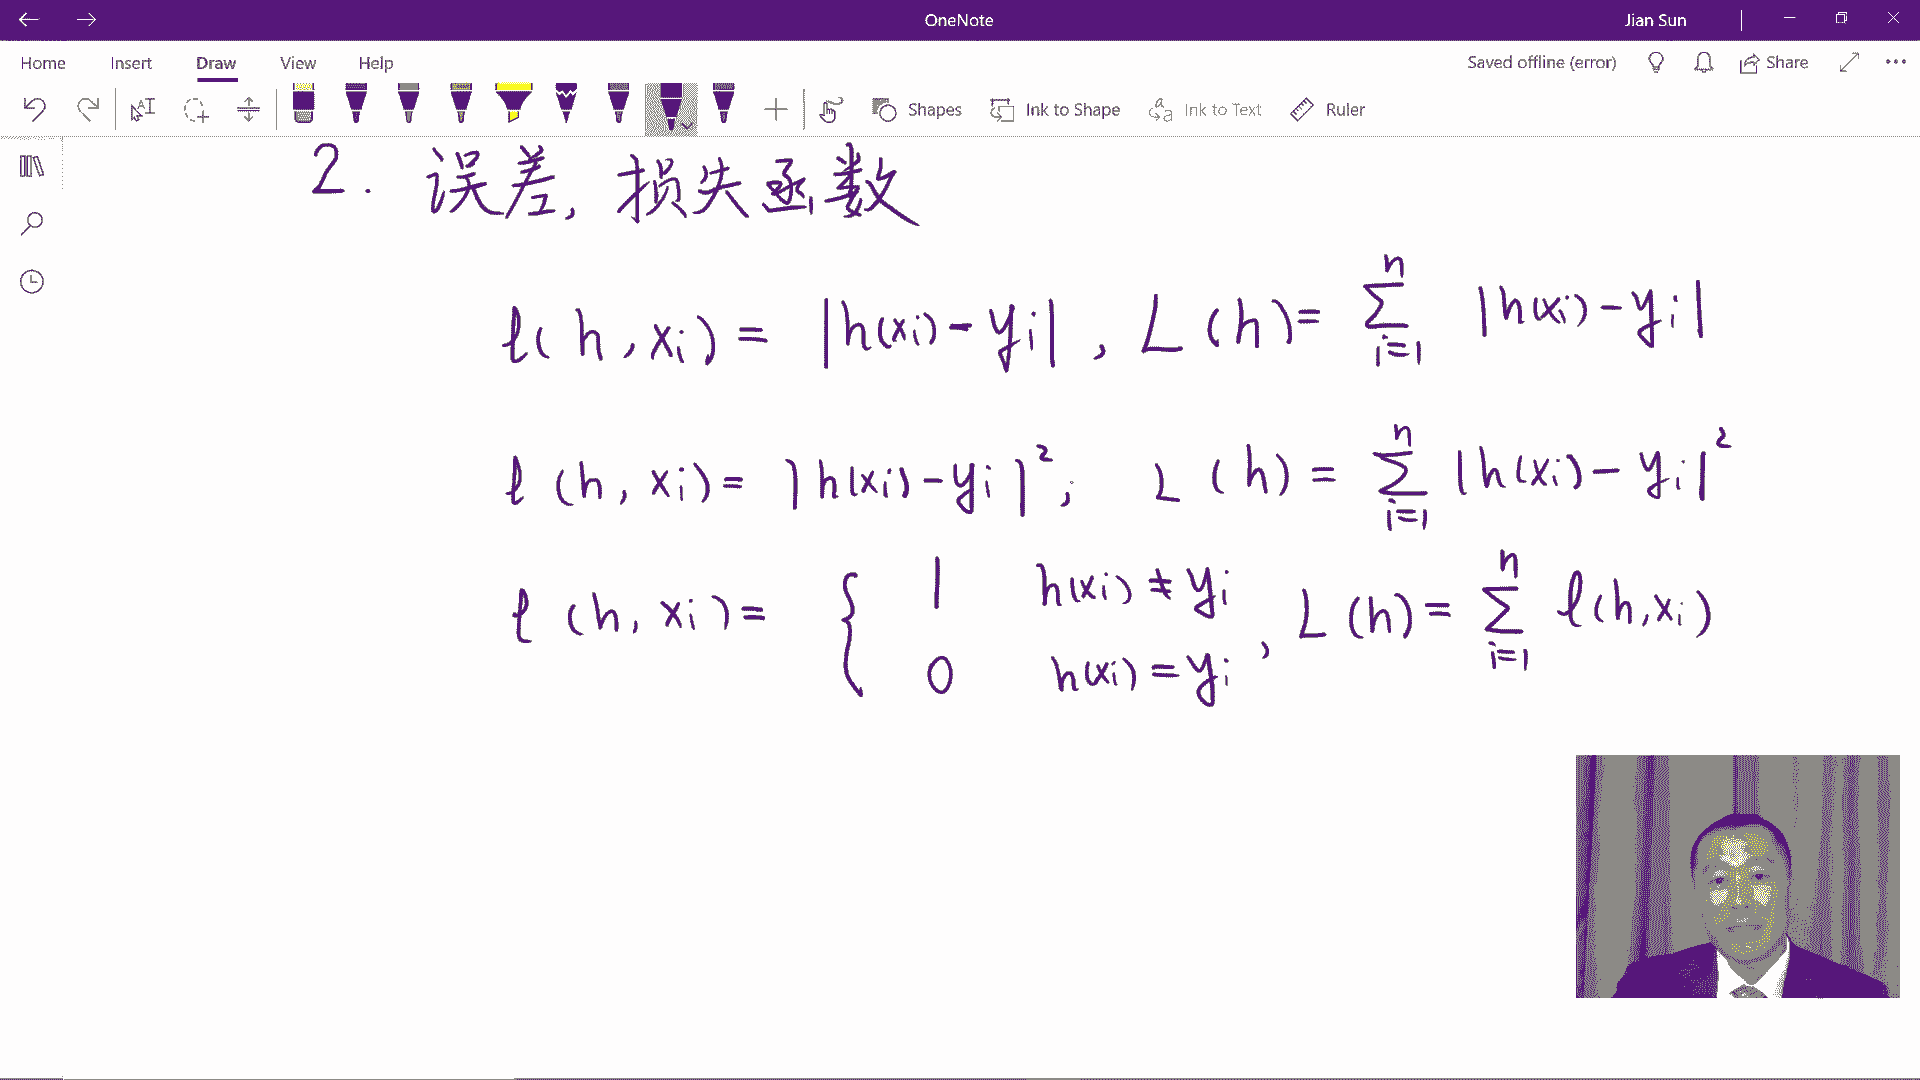 OneNote
Jian Sun
Home Insert Draw View Help
Saved offline (error) Share
Shapes Ink to Shape Ink to Text Ruler
2. 误差, 损失函数
ℓ(h, xᵢ) = |h(xᵢ) - yᵢ| , L(h) = ∑ᵢ₌₁ⁿ |h(xᵢ) - yᵢ|
ℓ(h, xᵢ) = |h(xᵢ) - yᵢ|² ; L(h) = ∑ᵢ₌₁ⁿ |h(xᵢ) - yᵢ|²
ℓ(h, xᵢ) = { 1 h(xᵢ) ≠ yᵢ
0 h(xᵢ) = yᵢ , L(h) = ∑ᵢ₌₁ⁿ ℓ(h, xᵢ)